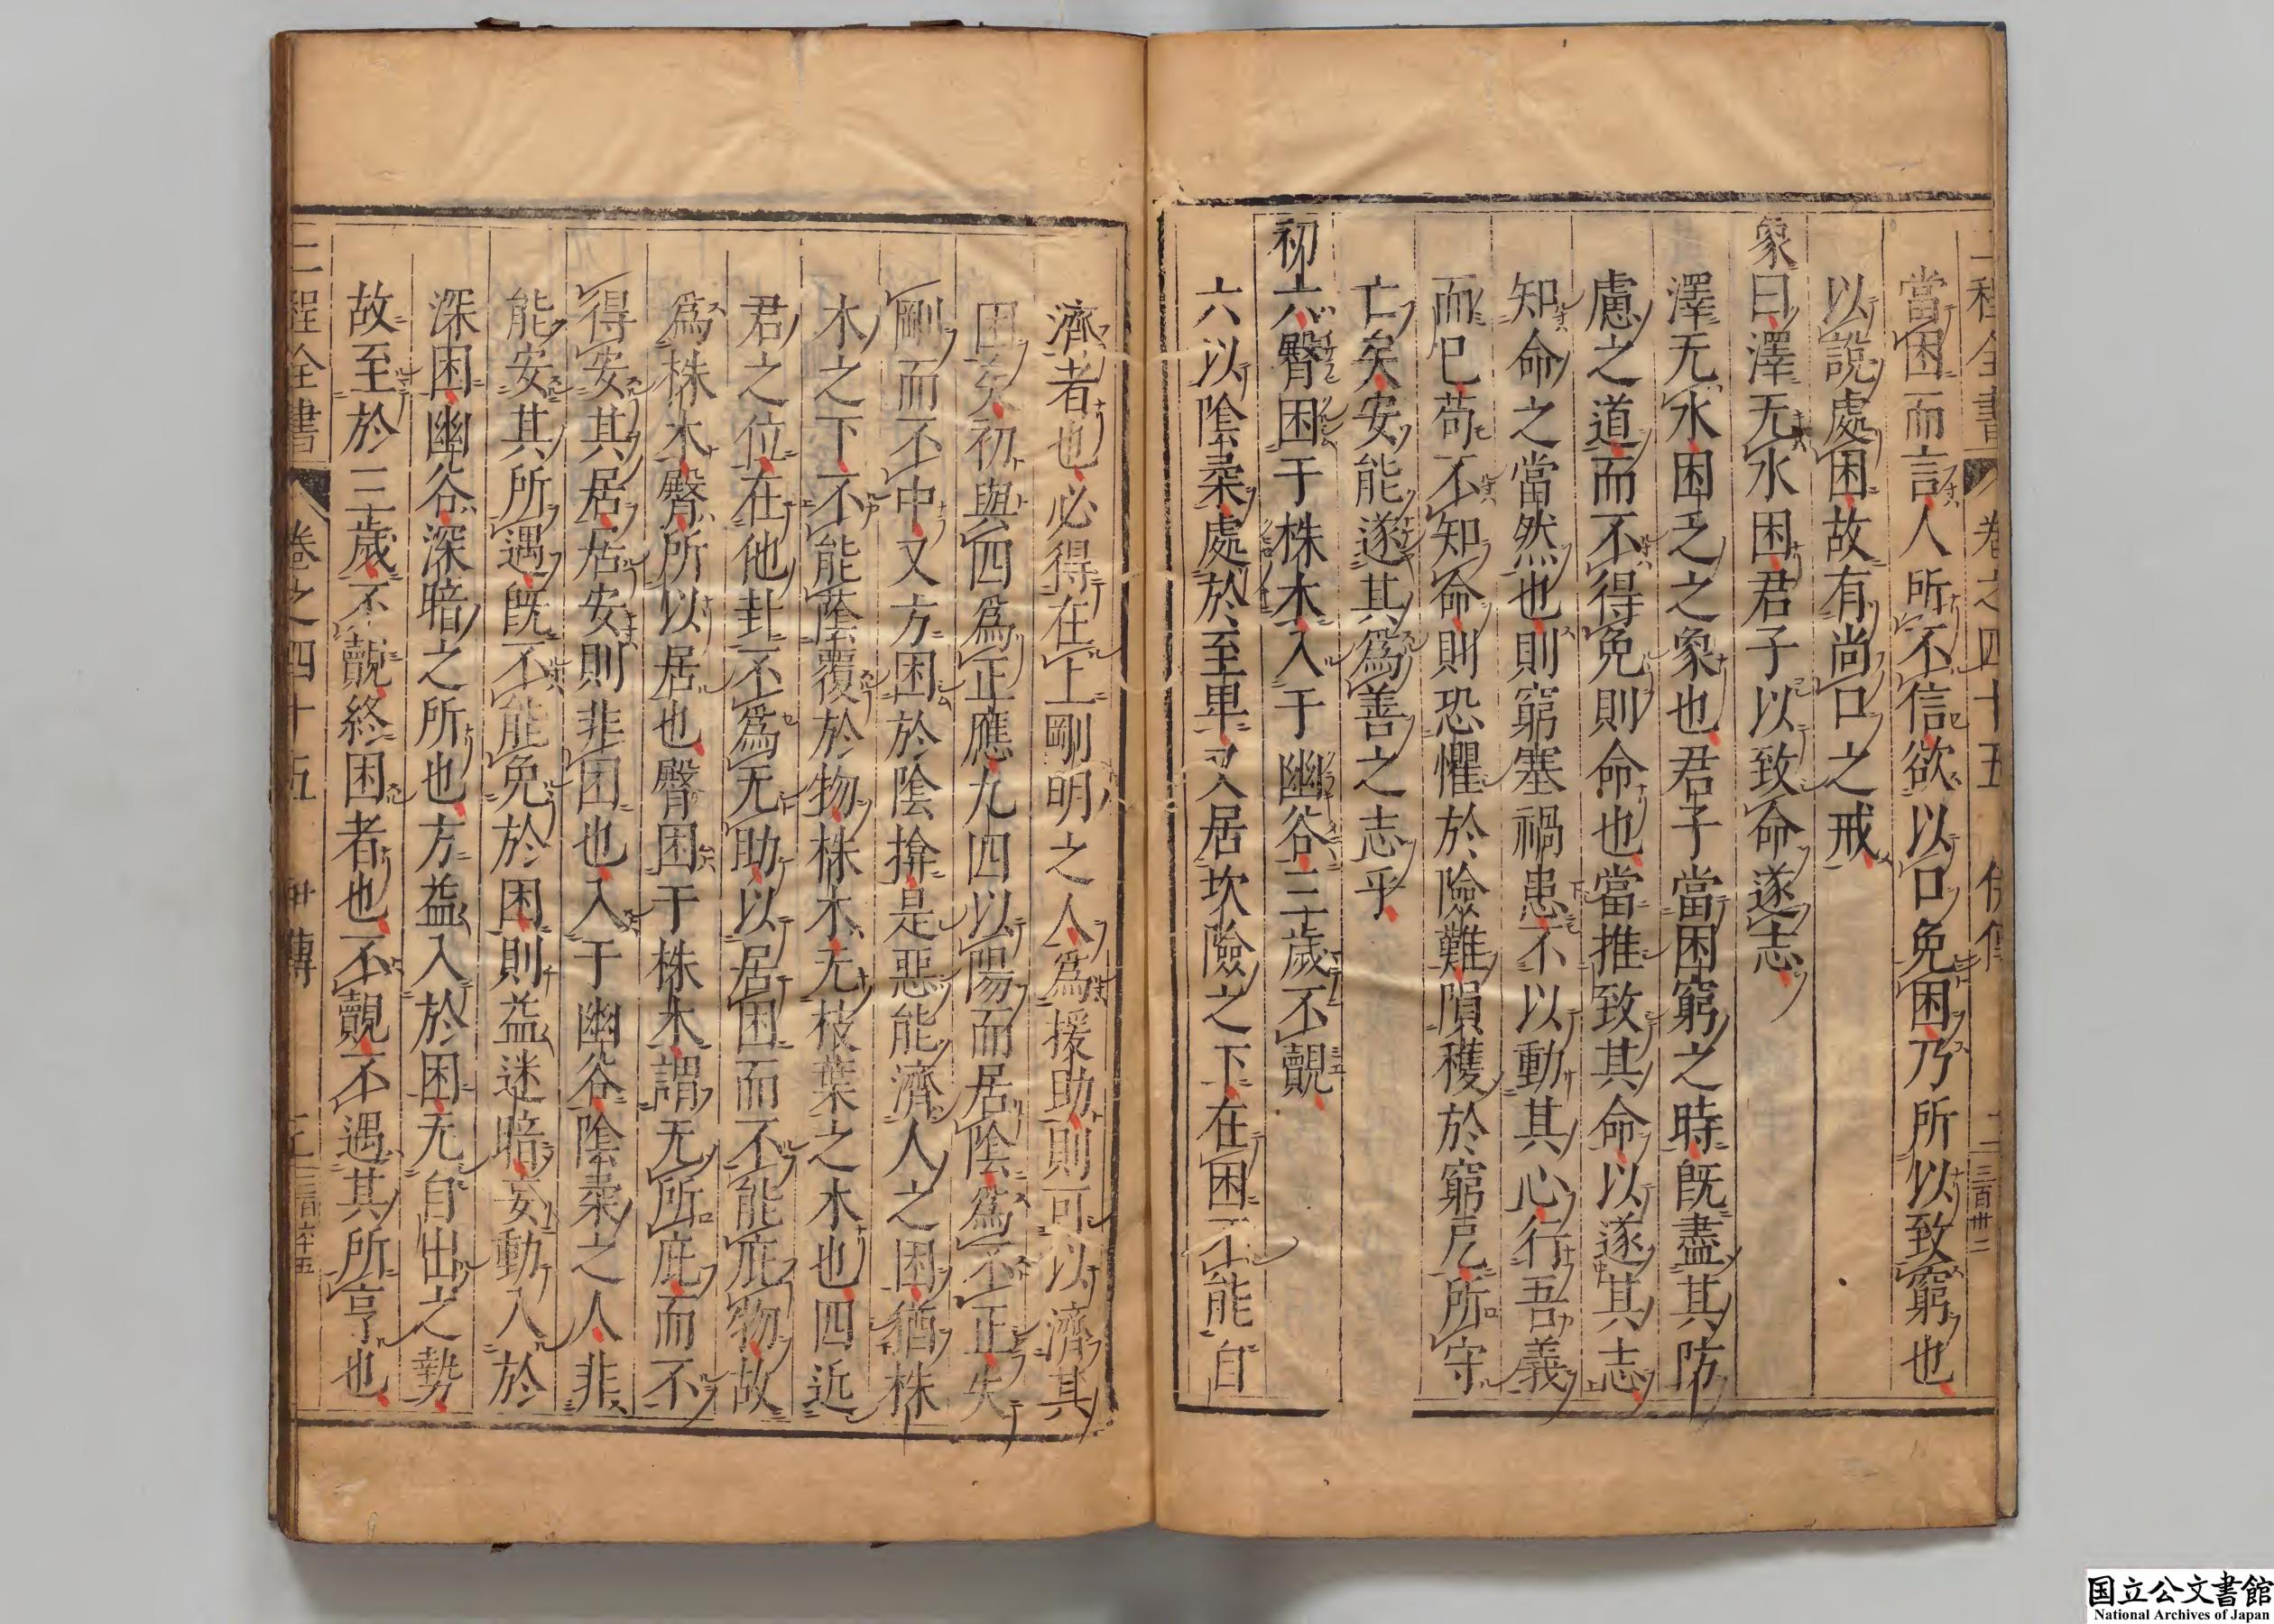 二程全書 卷之四十五
當困而言人所不信欲以口免困乃所以致窮也
以說處困故有尚口之戒
象曰澤无水困君子以致命遂志
澤无水困乏之象也君子當困窮之時既盡其防
慮之道而不得免則命也當推致其命以遂其志
知命之當然也則窮塞禍患不以動其心行吾義
而已苟不知命則恐懼於險難隕穫於窮戹所守
亡矣安能遂其爲善之志乎
初六臀困于株木入于幽谷三歲不覿
六以陰柔處於至卑又居坎險之下在困不能自
濟者也必得在上剛明之人爲援助則可以濟其
困矣初與四爲正應九四以陽而居陰爲不正失
剛而不中又方困於陰揜是惡能濟人之困猶株
木之下不能蔭覆於物株木无枝葉之木也四近
君之位在他卦不爲无助以居困而不能庇物故
爲株木臀所以居也臀困于株木謂无所庇而不
得安其居居安則非困也入于幽谷陰柔之人非
能安其所遇既不能免於困則益迷暗妄動入於
深困幽谷深暗之所也方益入於困无自出之勢
故至於三歲不覿終困者也不覿不遇其所亨也
二程全書 卷之四十五 伊傳
国立公文書館
National Archives of Japan